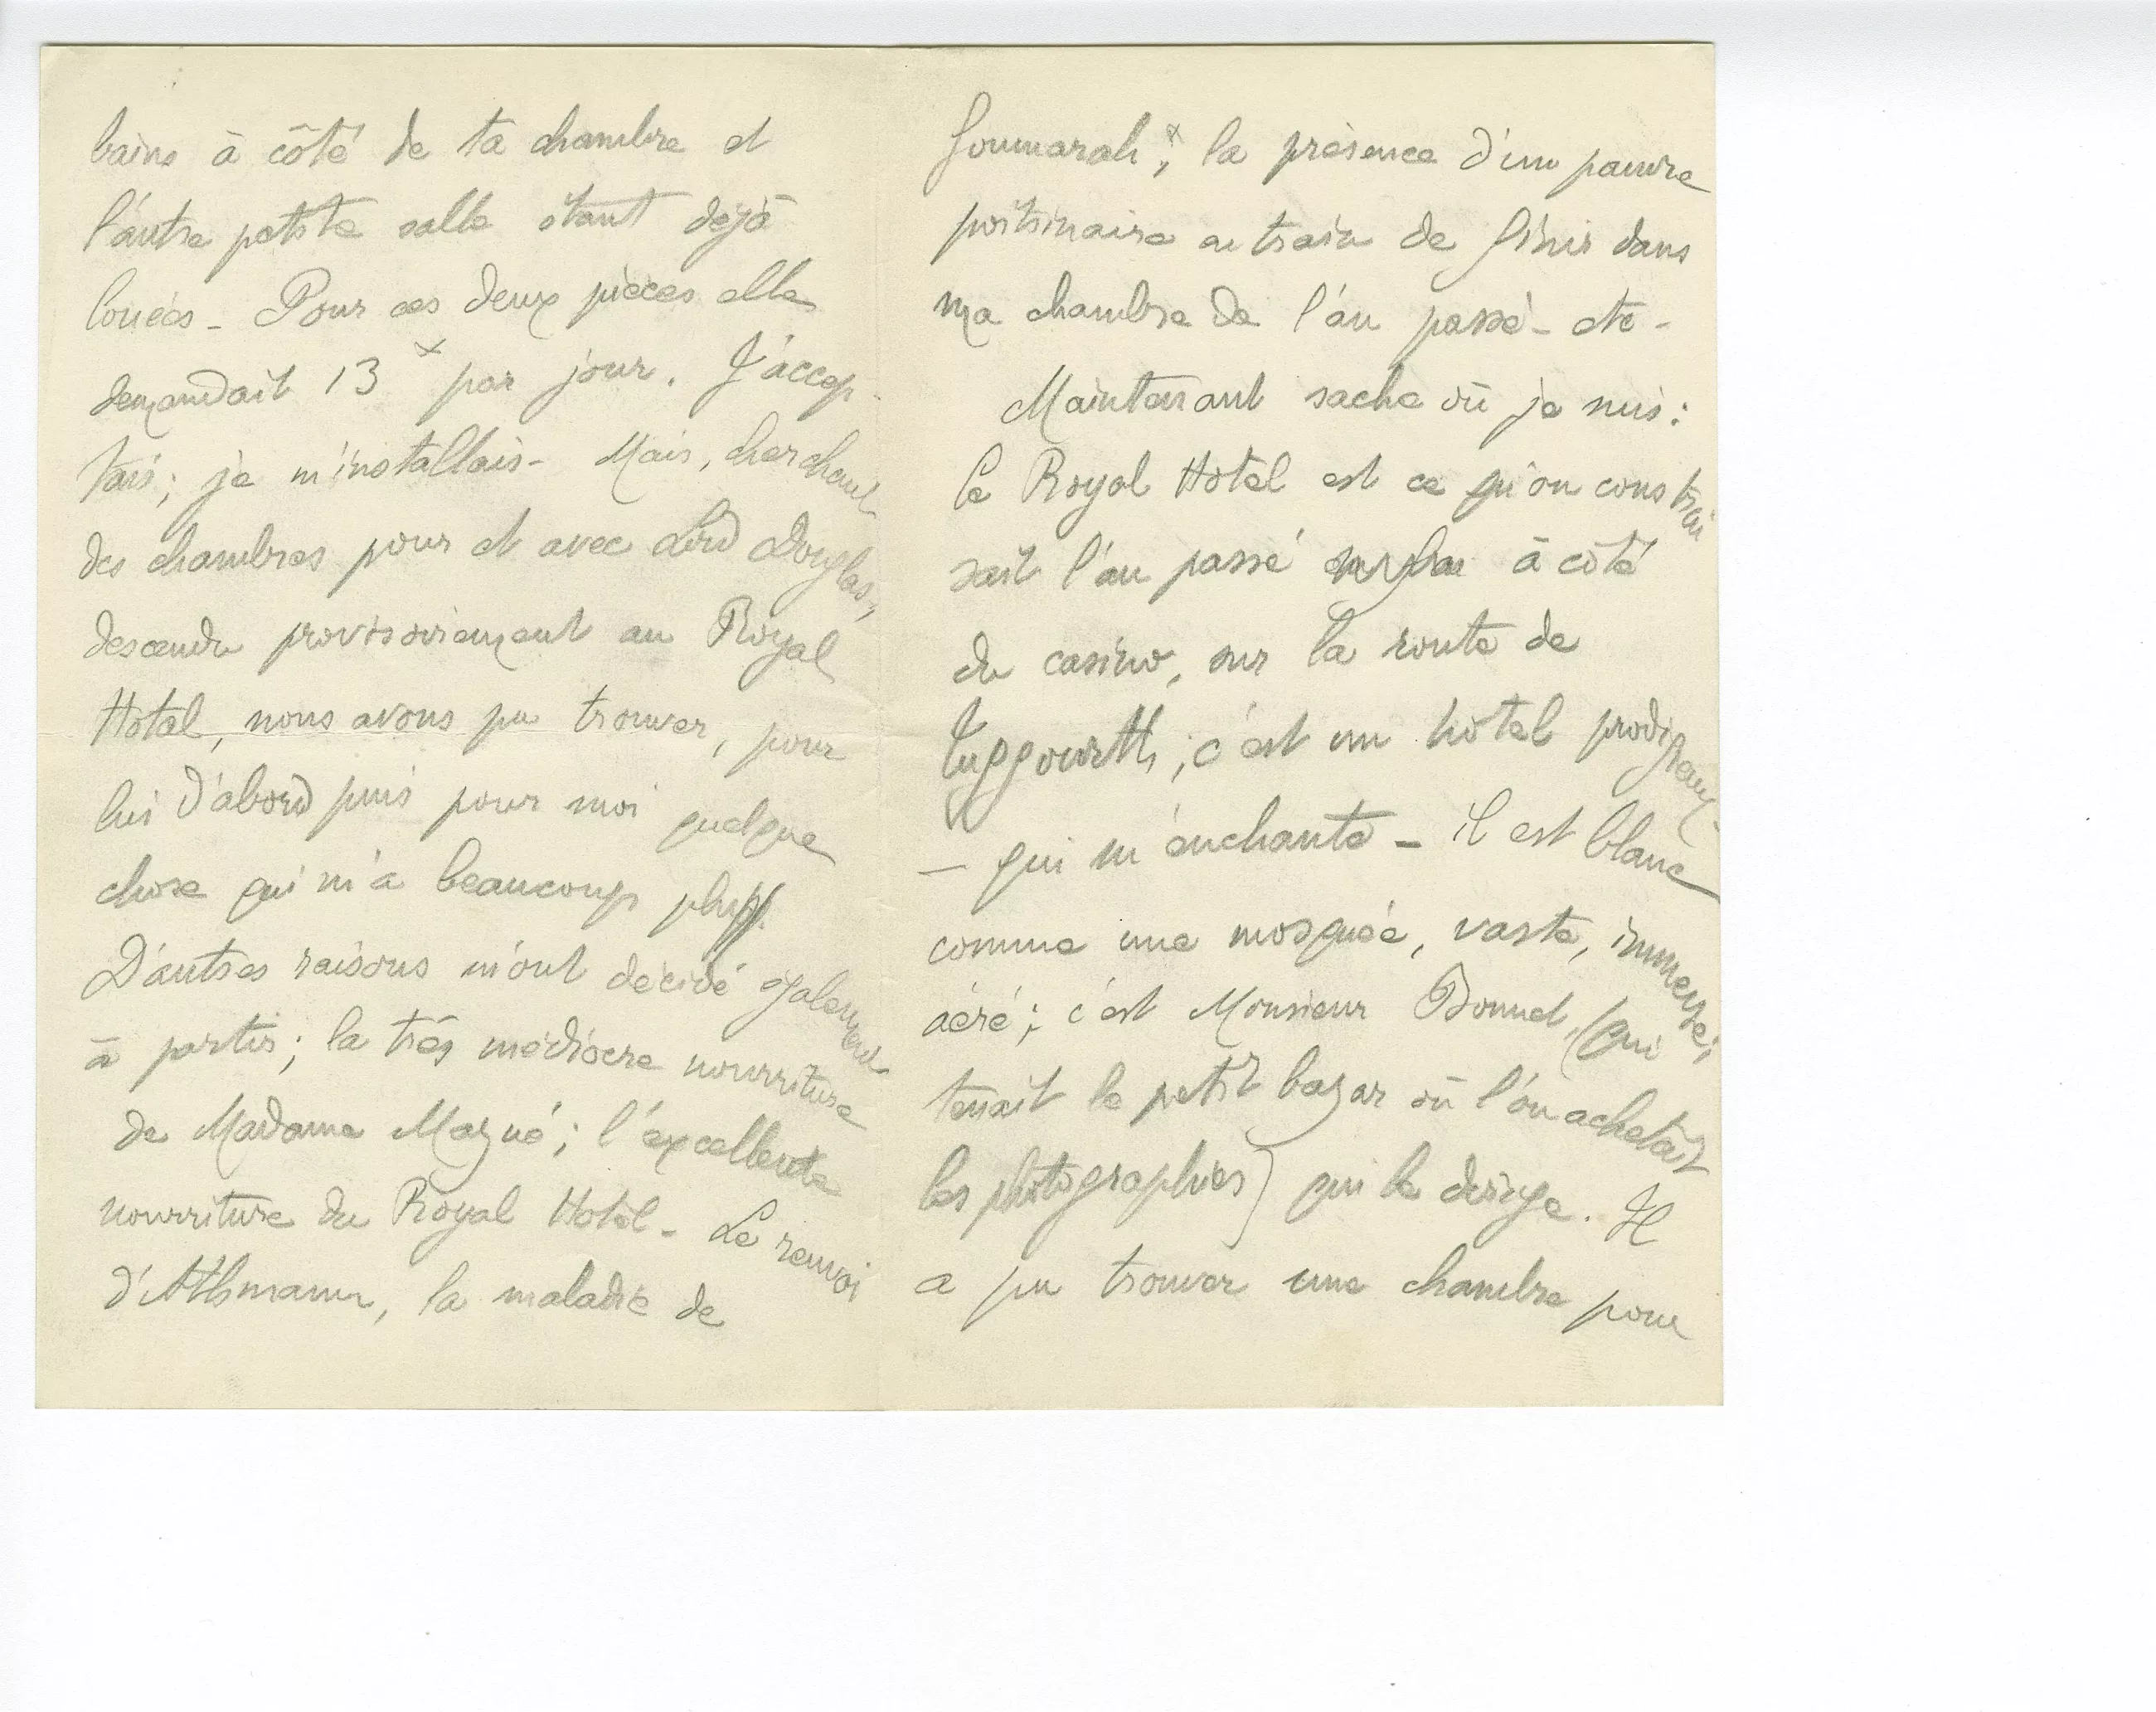 bains à côté de ta chambre et
l'autre petite salle étant déjà
louées - Pour ces deux pièces elle
demandait 13 x par jour. J'accep-
tais; je m'installais - Mais, cherchant
des chambres pour et avec Lord Douglas,
descendu provisoirement au Royal
Hôtel, nous avons pu trouver, pour
lui d'abord puis pour moi quelque
chose qui m'a beaucoup plu.
D'autres raisons m'ont décidé également
à partir; la très médiocre nourriture
de Madame Mazué; l'excellente
nourriture du Royal Hôtel - Le renvoi
d'Athmann, la maladie de
Goumarah x; la présence d'un pauvre
poitrinaire en train de finir dans
ma chambre de l'an passé - etc -
Maintenant sache où je suis:
le Royal Hôtel est ce qu'on construi
sait l'an passé à côté
du casino, sur la route de
Tuggourth; c'est un hôtel prodigieux -
- qui m'enchante - il est blanc
comme une mosquée, vaste, immense;
aéré; c'est Monsieur Bonnet, (qui
tenait le petit bazar où l'on achetait
les photographies) qui le dirige. Il
a pu trouver une chambre pour